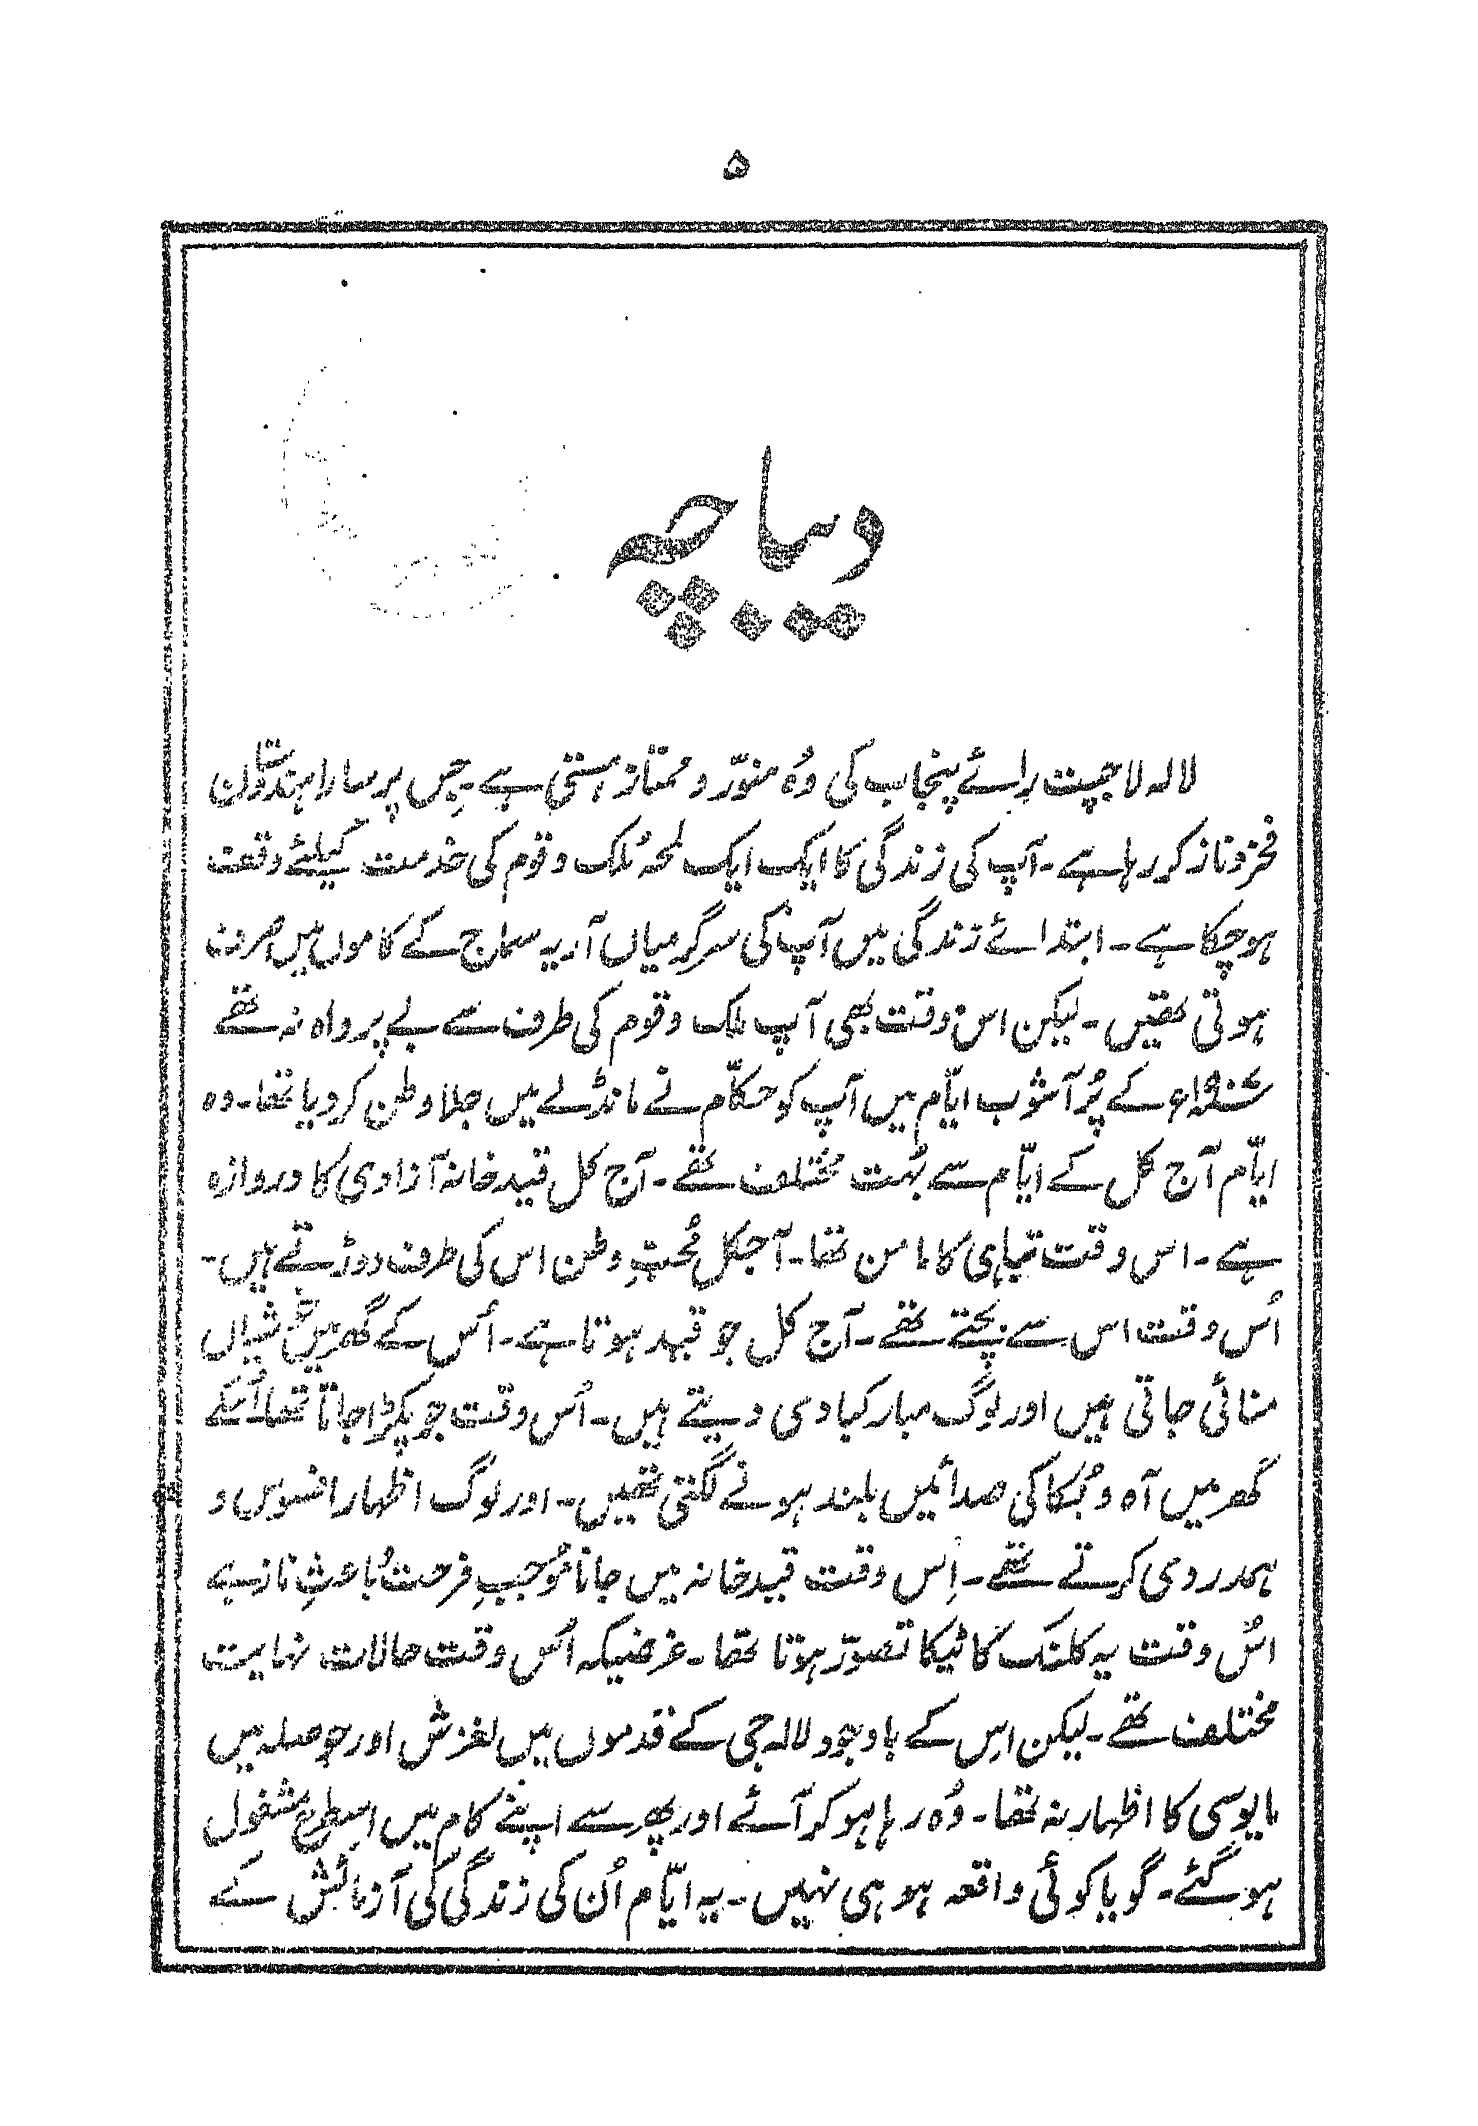 ۵
دیباچہ
لالہ لاجپت رائے پنجاب کی وُہ منوّر و ممتاز ہستی ہے۔ جِس پر سارا ہندوستان
فخرو ناز کر رہا ہے۔ آپ کی زندگی کا ایک ایک لمحہ مُلک و قوم کی خدمت کیلئے وقعت
ہوچکا ہے۔ ابتدائے زندگی میں آپ کی سرگرمیاں آریہ سماج کے کاموں میں صرف
ہوتی تھیں۔ لیکن اس وقت بھی آپ ملک و قوم کی طرف سے بے پرواہ نہ تھے
۱۹۰۷ء کے پُر آشوب ایّام میں آپ کو حکّام نے مانڈلے میں جلاوطن کر دیا تھا۔ وہ
ایّام آج کل کے ایّام سے بہُت مُختلف تھے۔ آج کل قیدخانہ آزادی کا دروازہ
ہے۔ اس وقت تباہی کا مامن تھا۔ آجکل مُحبِّ وطن اس کی طرف دوڑتے ہیں۔
اُس وقت اس سے بچتے تھے۔ آج کل جو قید ہوتا ہے۔ اُس کے گھر میں خوشیاں
منائی جاتی ہیں اور لوگ مبارکبادی دیتے ہیں۔ اُس وقت جو پکڑا جاتا تھا اُسکے
گھر میں آہ و بُکا کی صدائیں بلند ہونے لگتی تھیں۔ اور لوگ اظہار افسوس و
ہمدردی کرتے تھے۔ اِس وقت قیدخانہ میں جانا مُوجبِ فرحت و باعثِ ناز ہے
اسُ وقت یہ کلنک کا ٹیکا تصوّر ہوتا تھا۔ غرضیکہ اُس وقت حالات نہایت
مختلف تھے۔ لیکن اس کے باوجود لالہ جی کے قدموں میں لغزش اور حوصلہ میں
مایوسی کا اظہار نہ تھا۔ وُہ رہا ہو کر آئے اور پھر سے اپنے کام میں اسطرح مشغول
ہو گئے۔ گویا کوئی واقعہ ہو ہی نہیں۔ یہ ایّام اُن کی زندگی کی آزمائش کے